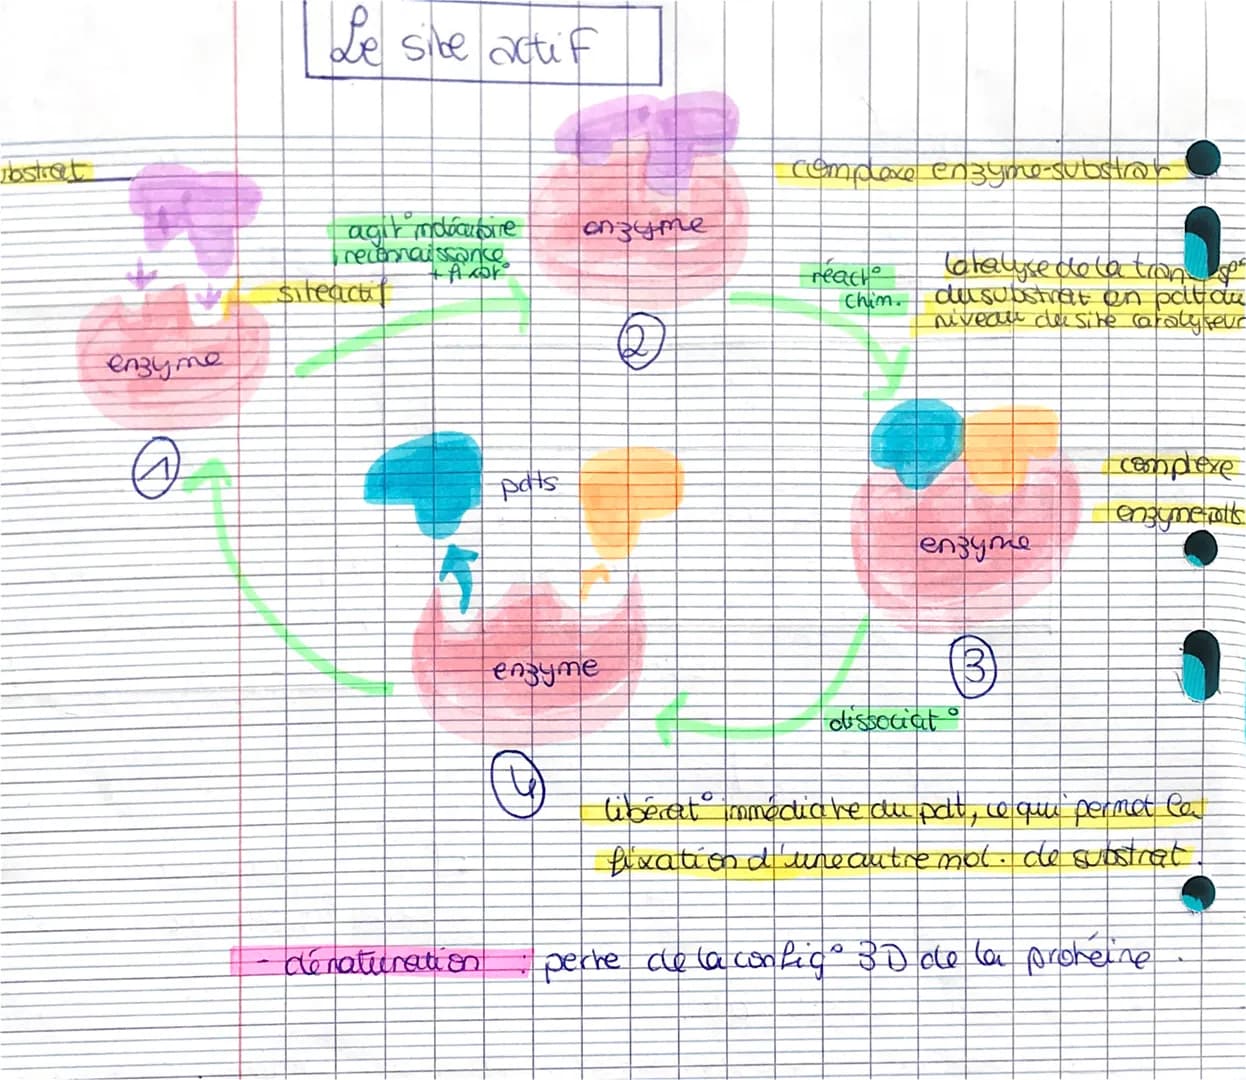 Le site actif
ubstrat
complexe enzyme-substrat
agit° moléculaire
reconnaissance
+ fixat°
enzyme
site actif
enzyme
réact°
chim.
Catalyse de la transf°
du substrat en pdt au
niveau du site catalyseur
2
1
pdts
complexe
enzyme-pdts
enzyme
enzyme
3
dissociat°
4
libérat° immédiate du pdt, ce qui permet la
fixation d'une autre mol. de substrat.
- dénaturation : perte de la config° 3D de la protéine.